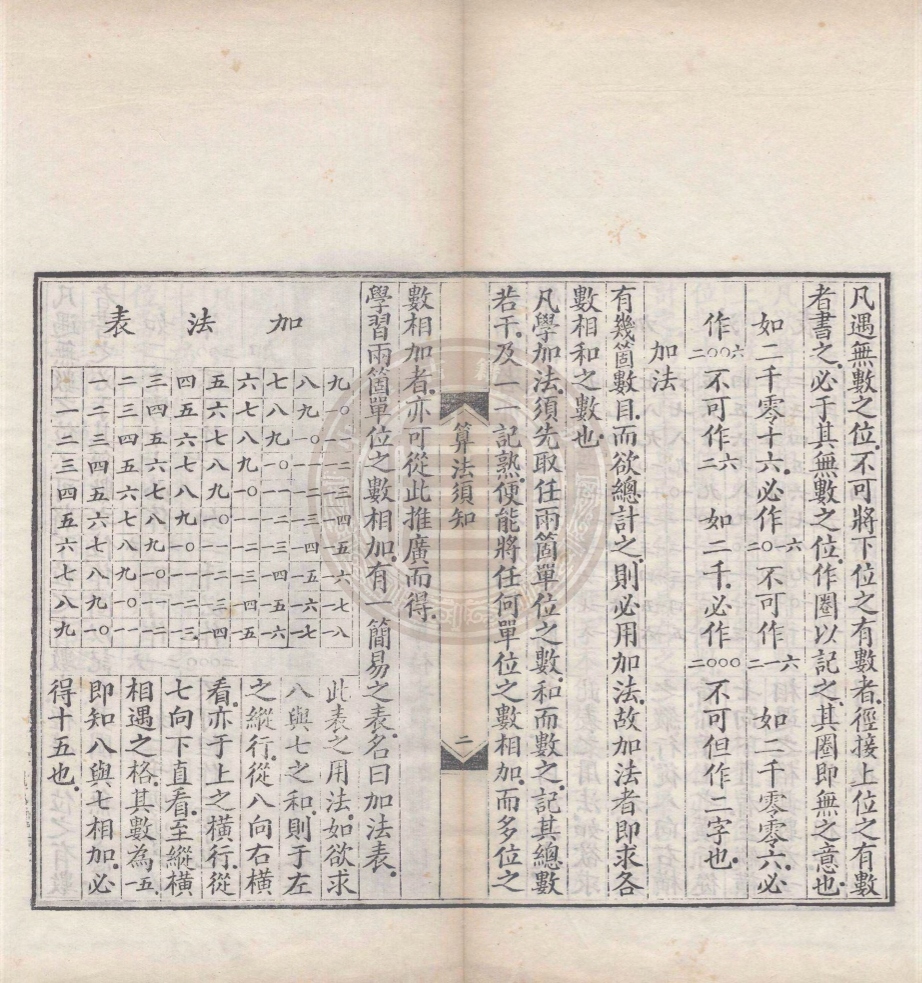 凡遇無數之位。不可將下位之有數者。徑接上位之有數
者書之。必于其無數之位。作圈以記之。其圈即無之意也。
如二千零十六。必作二〇一六不可作二一六 如二千零零六。必
作二〇〇六不可作二六 如二千。必作二〇〇〇不可但作二字也。
加法
有幾箇數目。而欲總計之。則必用加法。故加法者即求各
數相和之數也。
凡學加法。須先取任兩箇單位之數。和而數之。記其總數
若干。及一一記熟。便能將任何單位之數相加。而多位之
算法須知
二
數相加者。亦可從此推廣而得。
學習兩箇單位之數相加。有一簡易之表。名曰加法表。
加法表
一 二 三 四 五 六 七 八 九
一 二 三 四 五 六 七 八 九 一〇
二 三 四 五 六 七 八 九 一〇 一一
三 四 五 六 七 八 九 一〇 一一 一二
四 五 六 七 八 九 一〇 一一 一二 一三
五 六 七 八 九 一〇 一一 一二 一三 一四
六 七 八 九 一〇 一一 一二 一三 一四 一五
七 八 九 一〇 一一 一二 一三 一四 一五 一六
八 九 一〇 一一 一二 一三 一四 一五 一六 一七
九 一〇 一一 一二 一三 一四 一五 一六 一七 一八
此表之用法。如欲求
八與七之和。則于左
之縱行。從八向右橫
看。亦于上之橫行。從
七向下直看。至縱橫
相遇之格。其數為一五。
即知八與七相加。必
得十五也。